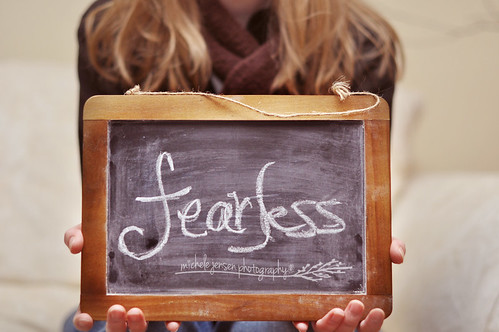 fearless
michele jensen photography